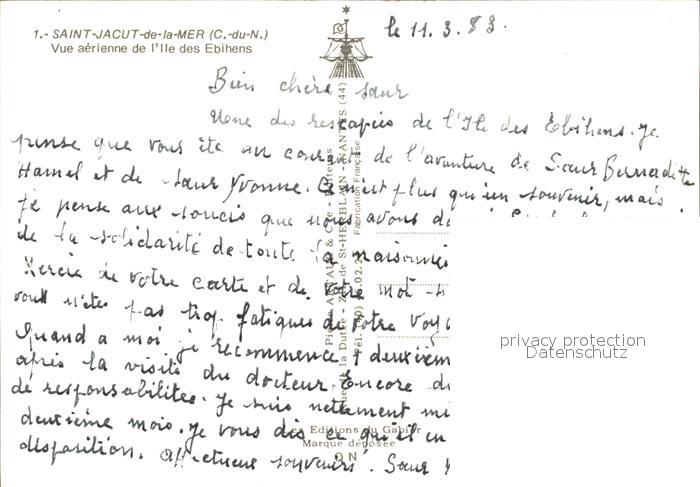 1.- SAINT-JACUT-de-la-MER (C.-du-N.)
Vue aérienne de l'Ile des Ebihens
le 11.3.83.
Bien chère sœur
Une des rescapées de l'Ile des Ebihens. Je
pense que vous ête au courant de l'aventure de Sœur Bernadette
Hamel et de sœur Yvonne. Ce n'est plus qu'un souvenir, mais
je pense aux soucis que nous avons
de la solidarité de toute la maisonnée
Mercie de votre carte et de votre mot
vous n'êtes pas trop fatiguée de votre
Quand a moi je recommence 1 deuxièm
après la visite du docteur Encore
de responsabilites. Je suis nettement mi
deuxième mois. Je vous dis ce qu'il en
disposition. Affectueux souvenirs. Sœur
Les Editions du Gabier
Marque déposée
de St-HERBLAIN - NANTES (44)
Fabrication Française
privacy protection
Datenschutz